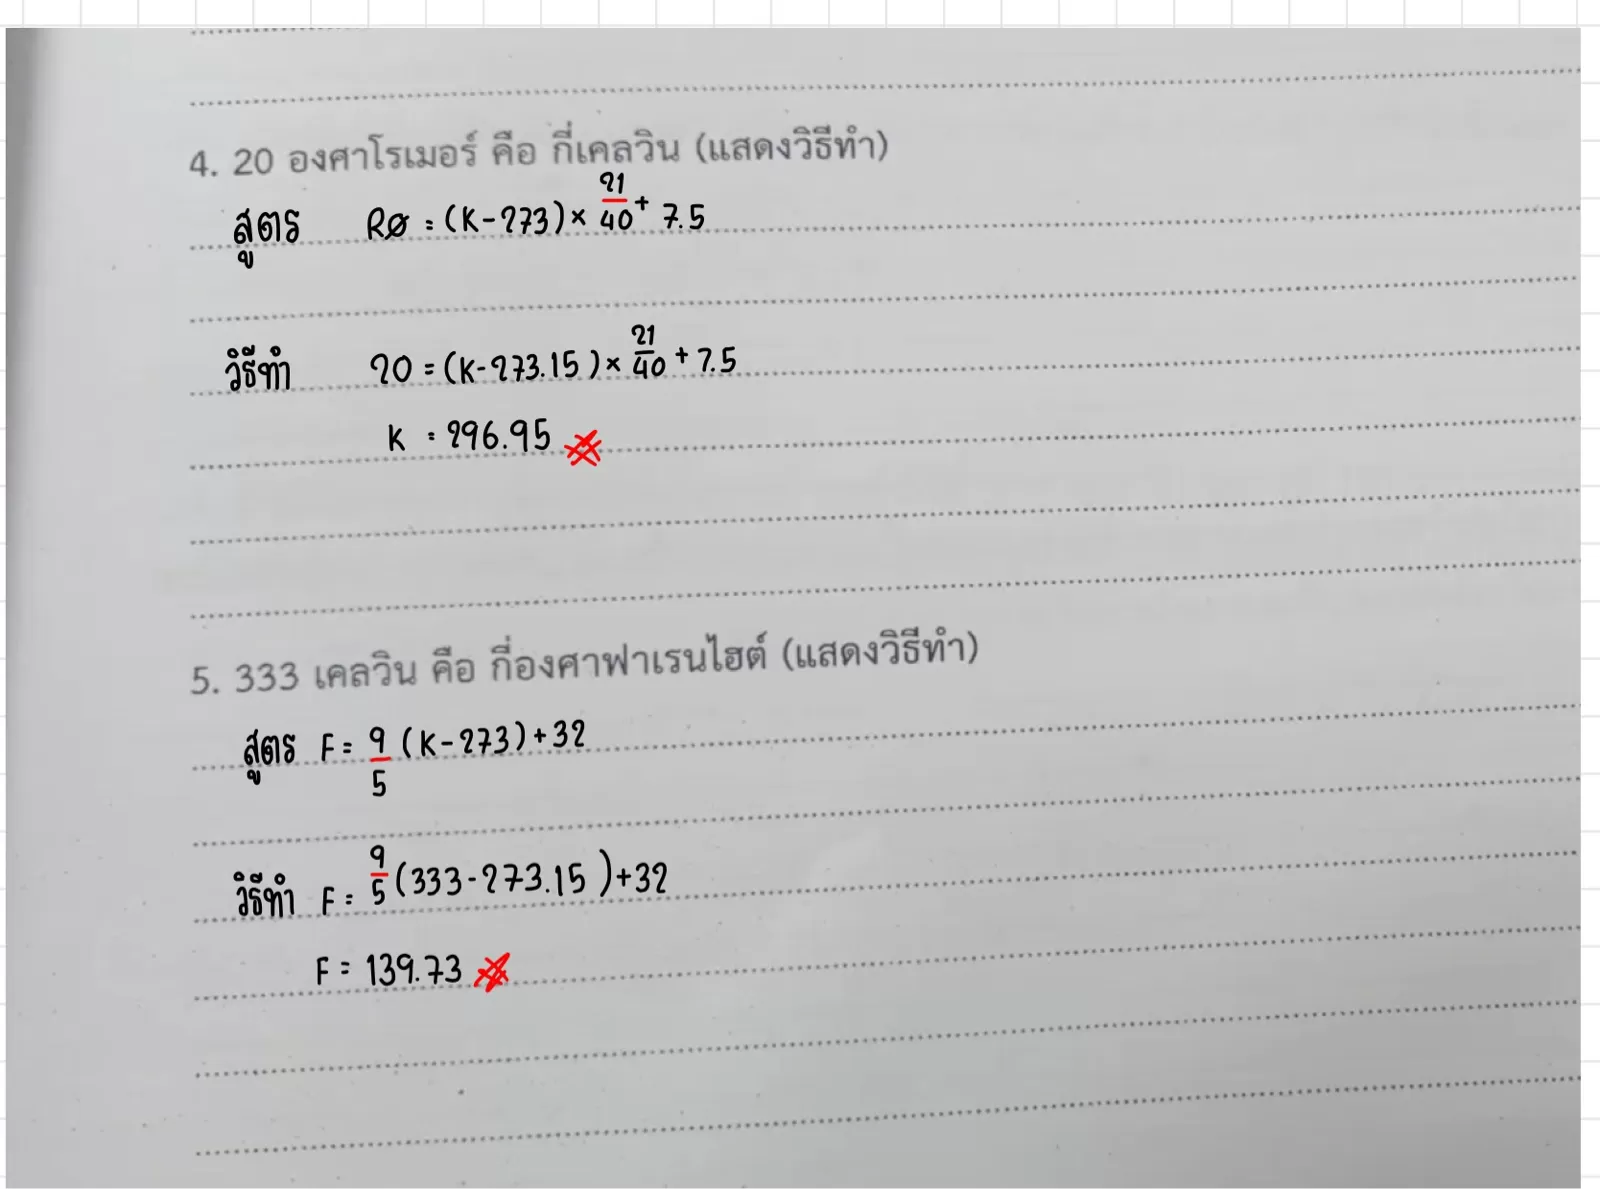 4. 20 องศาโรเมอร์ คือ กี่เคลวิน (แสดงวิธีทำ)
สูตร RØ = (K-273) × 21/40 + 7.5
วิธีทำ 20 = (K-273.15) × 21/40 + 7.5
K = 296.95
5. 333 เคลวิน คือ กี่องศาฟาเรนไฮต์ (แสดงวิธีทำ)
สูตร F = 9/5 (K-273)+32
วิธีทำ F = 9/5 (333-273.15)+32
F = 139.73